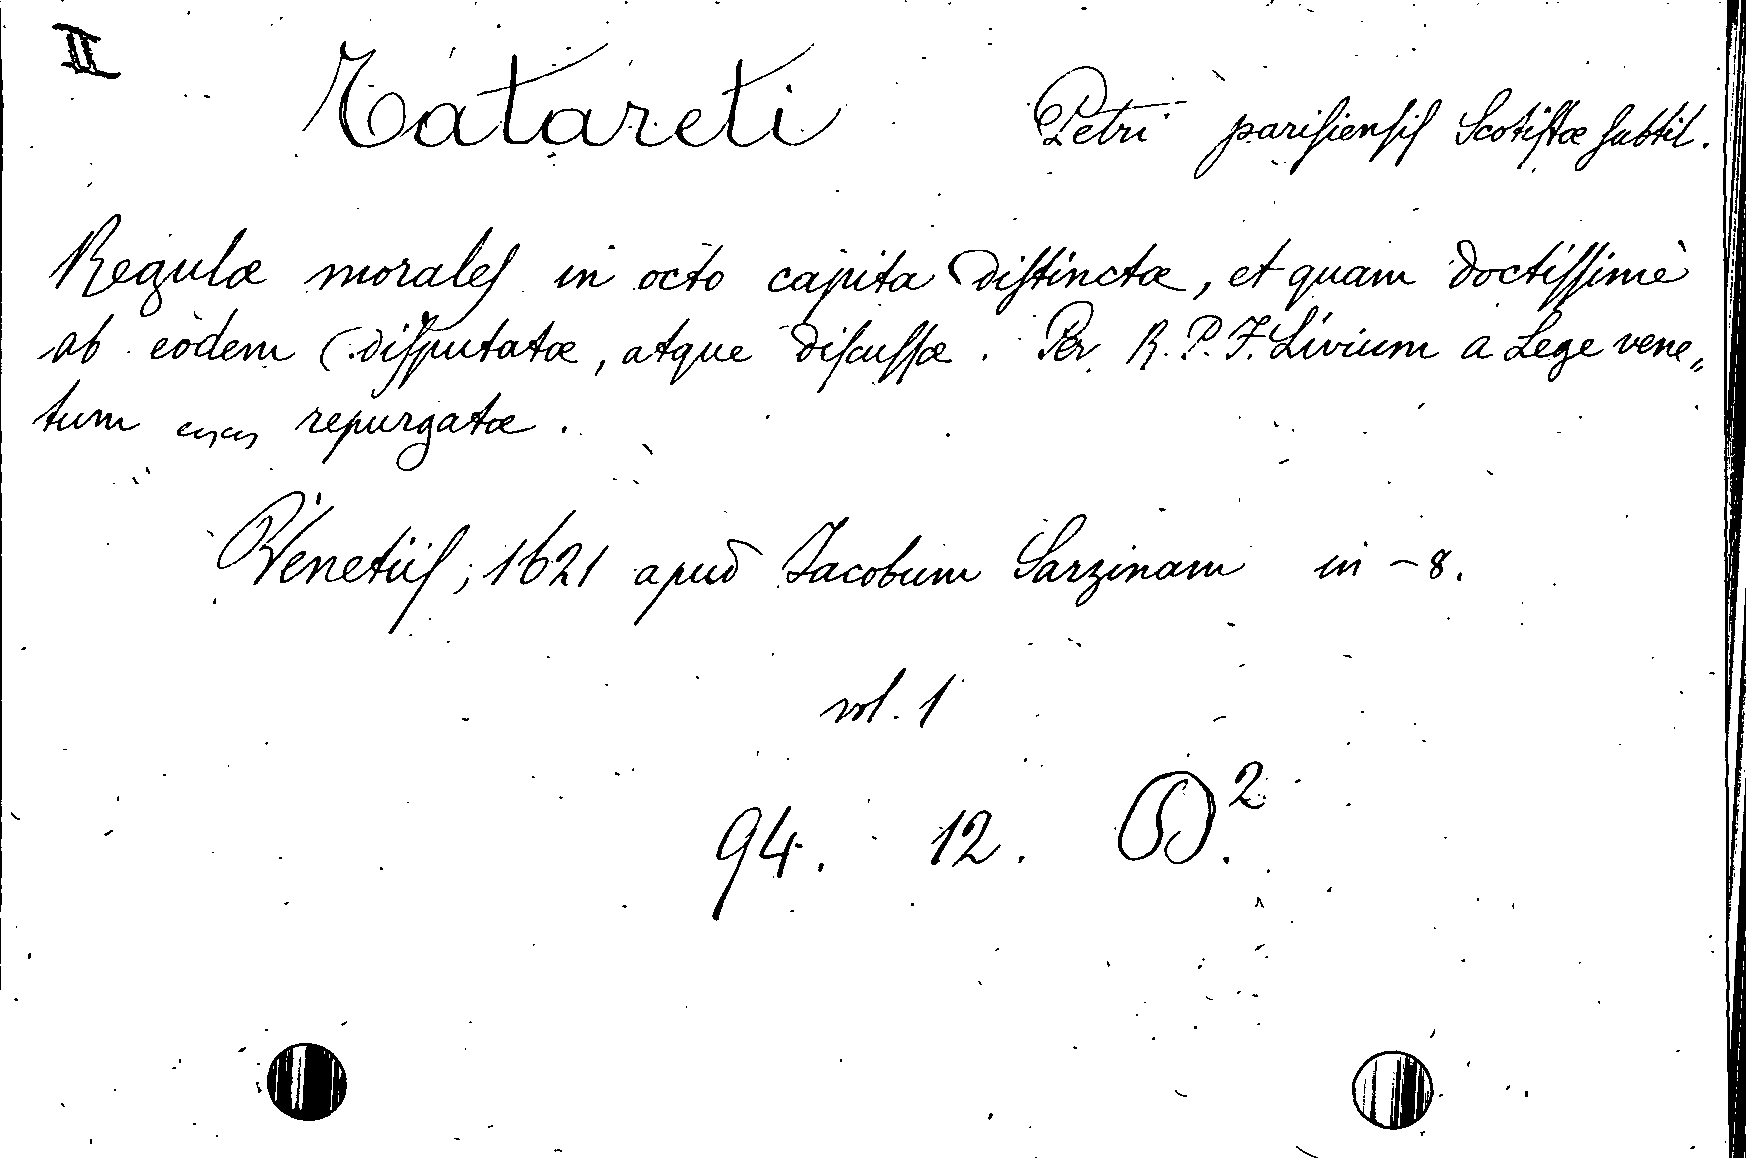 II
Tatareti Petri parisiensis Scotistæ subtil.
Regulæ morales in octo capita distinctæ, et quam doctissimè
ab eodem disputatæ, atque discussæ. Per R. P. F. Livium a Lege vene„
tum repurgatæ.
Venetiis, 1621 apud Jacobum Sarzinam in-8.
vol. 1
94. 12. 2